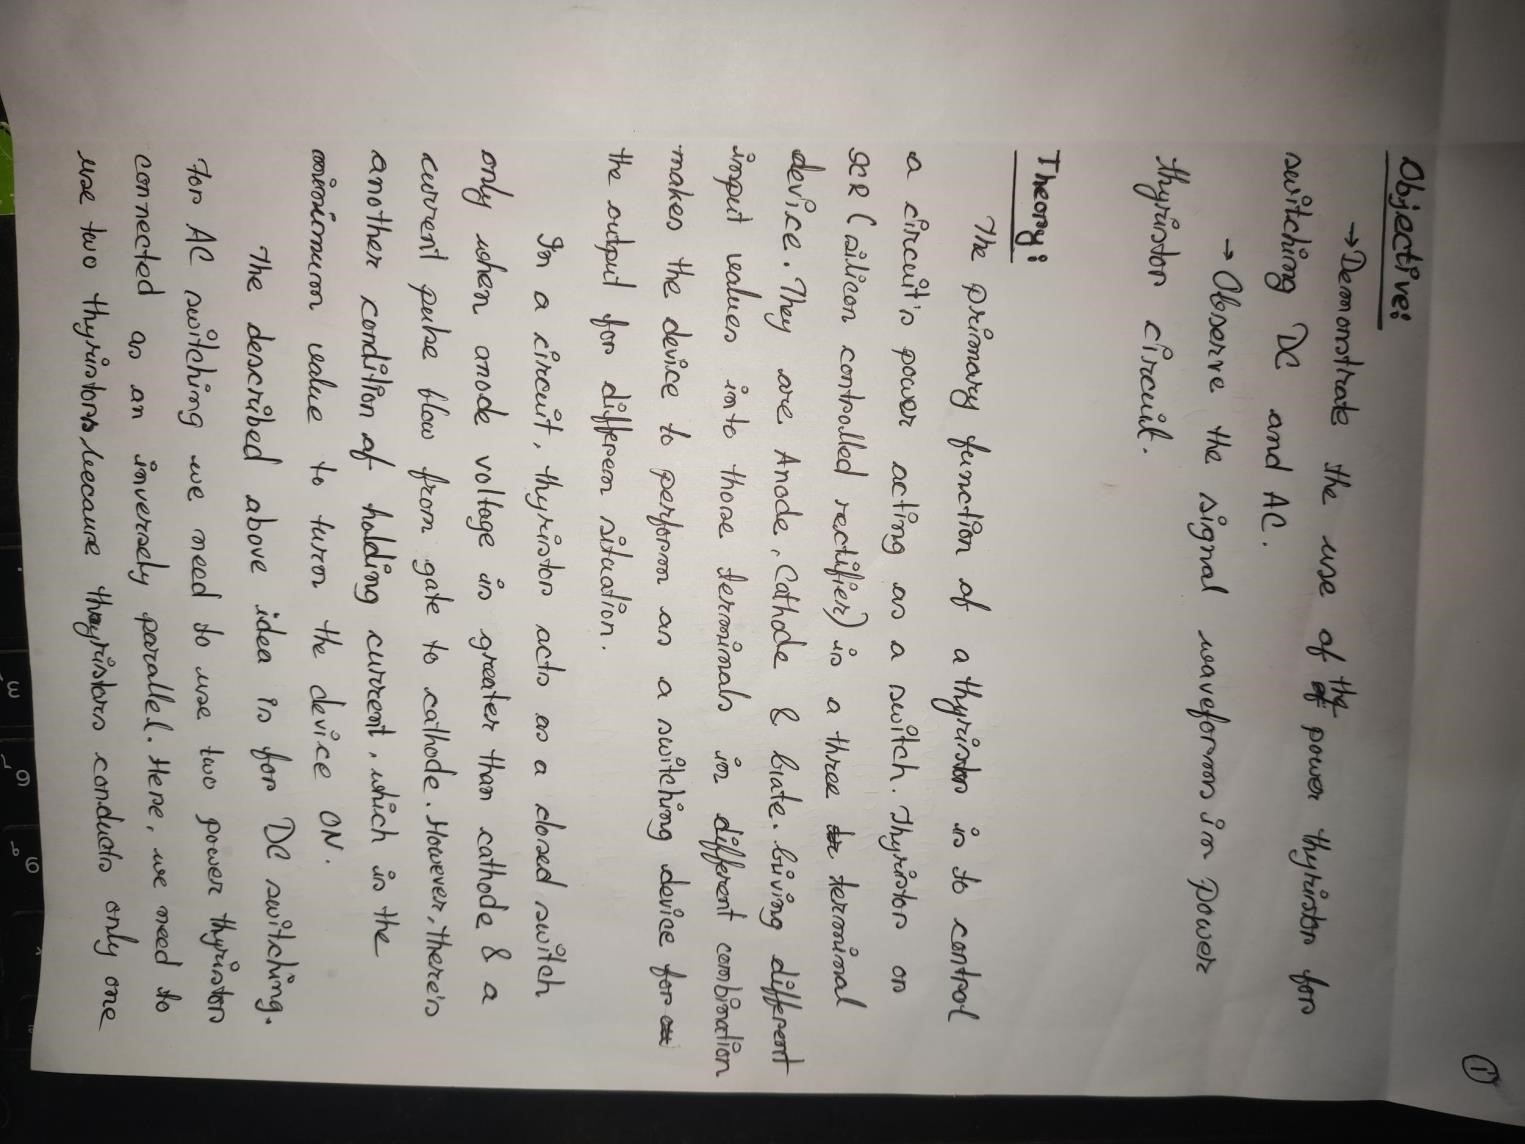 1
Objective:
→ Demonstrate the use of the power thyristor for
switching DC and AC.
→ Observe the signal waveforms in power
thyristor circuit.
Theory:
The primary function of a thyristor is to control
a circuit's power acting as a switch. Thyristor or
SCR (silicon controlled rectifier) is a three terminal
device. They are Anode, Cathode & Gate. Giving different
input values into those terminals in different combination
makes the device to perform as a switching device for
the output for differen situation.
In a circuit, thyristor acts as a closed switch
only when anode voltage is greater than cathode & a
current pulse flow from gate to cathode. However, there's
another condition of holding current, which is the
minimum value to turn the device ON.
The described above idea is for DC switching.
For AC switching we need to use two power thyristors
connected as an inversely parallel. Here, we need to
use two thyristors because thyristors conducts only one